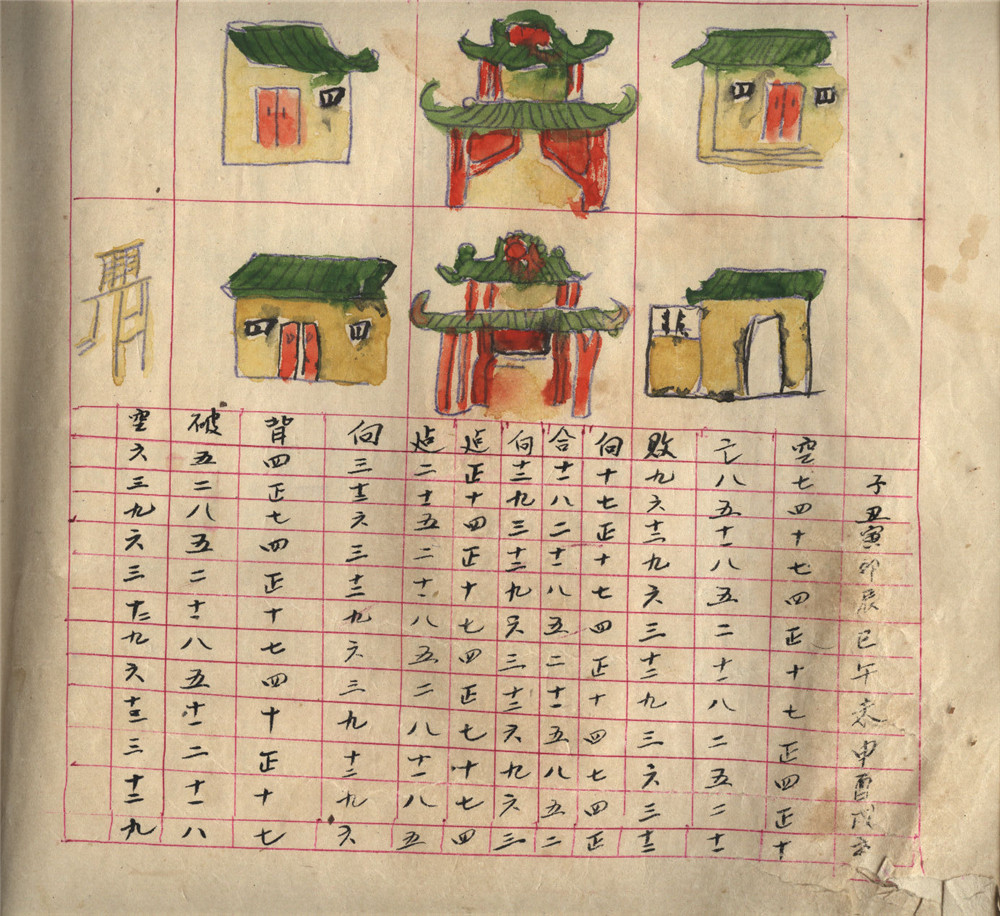 子丑寅卯辰巳午未申酉戌亥
空七四十七四正十七正四正十
亡八五十一八五二十一八二五二十一
敗九六十二九六三十二九三六三十二
向十七正十七四正十四七四正
合十一八二十一八五二十一五八五二
向十二九三十二九六三十二六九六三
迠正十四正十七四正七十七四
迠二十一五二十一八五二八十一八五
向三十二六三十二九六三九十二九六
背四正七四正十七四十正十七
破五二八五二十一八五十一二十一八
空六三九六三十二九六十二三十二九